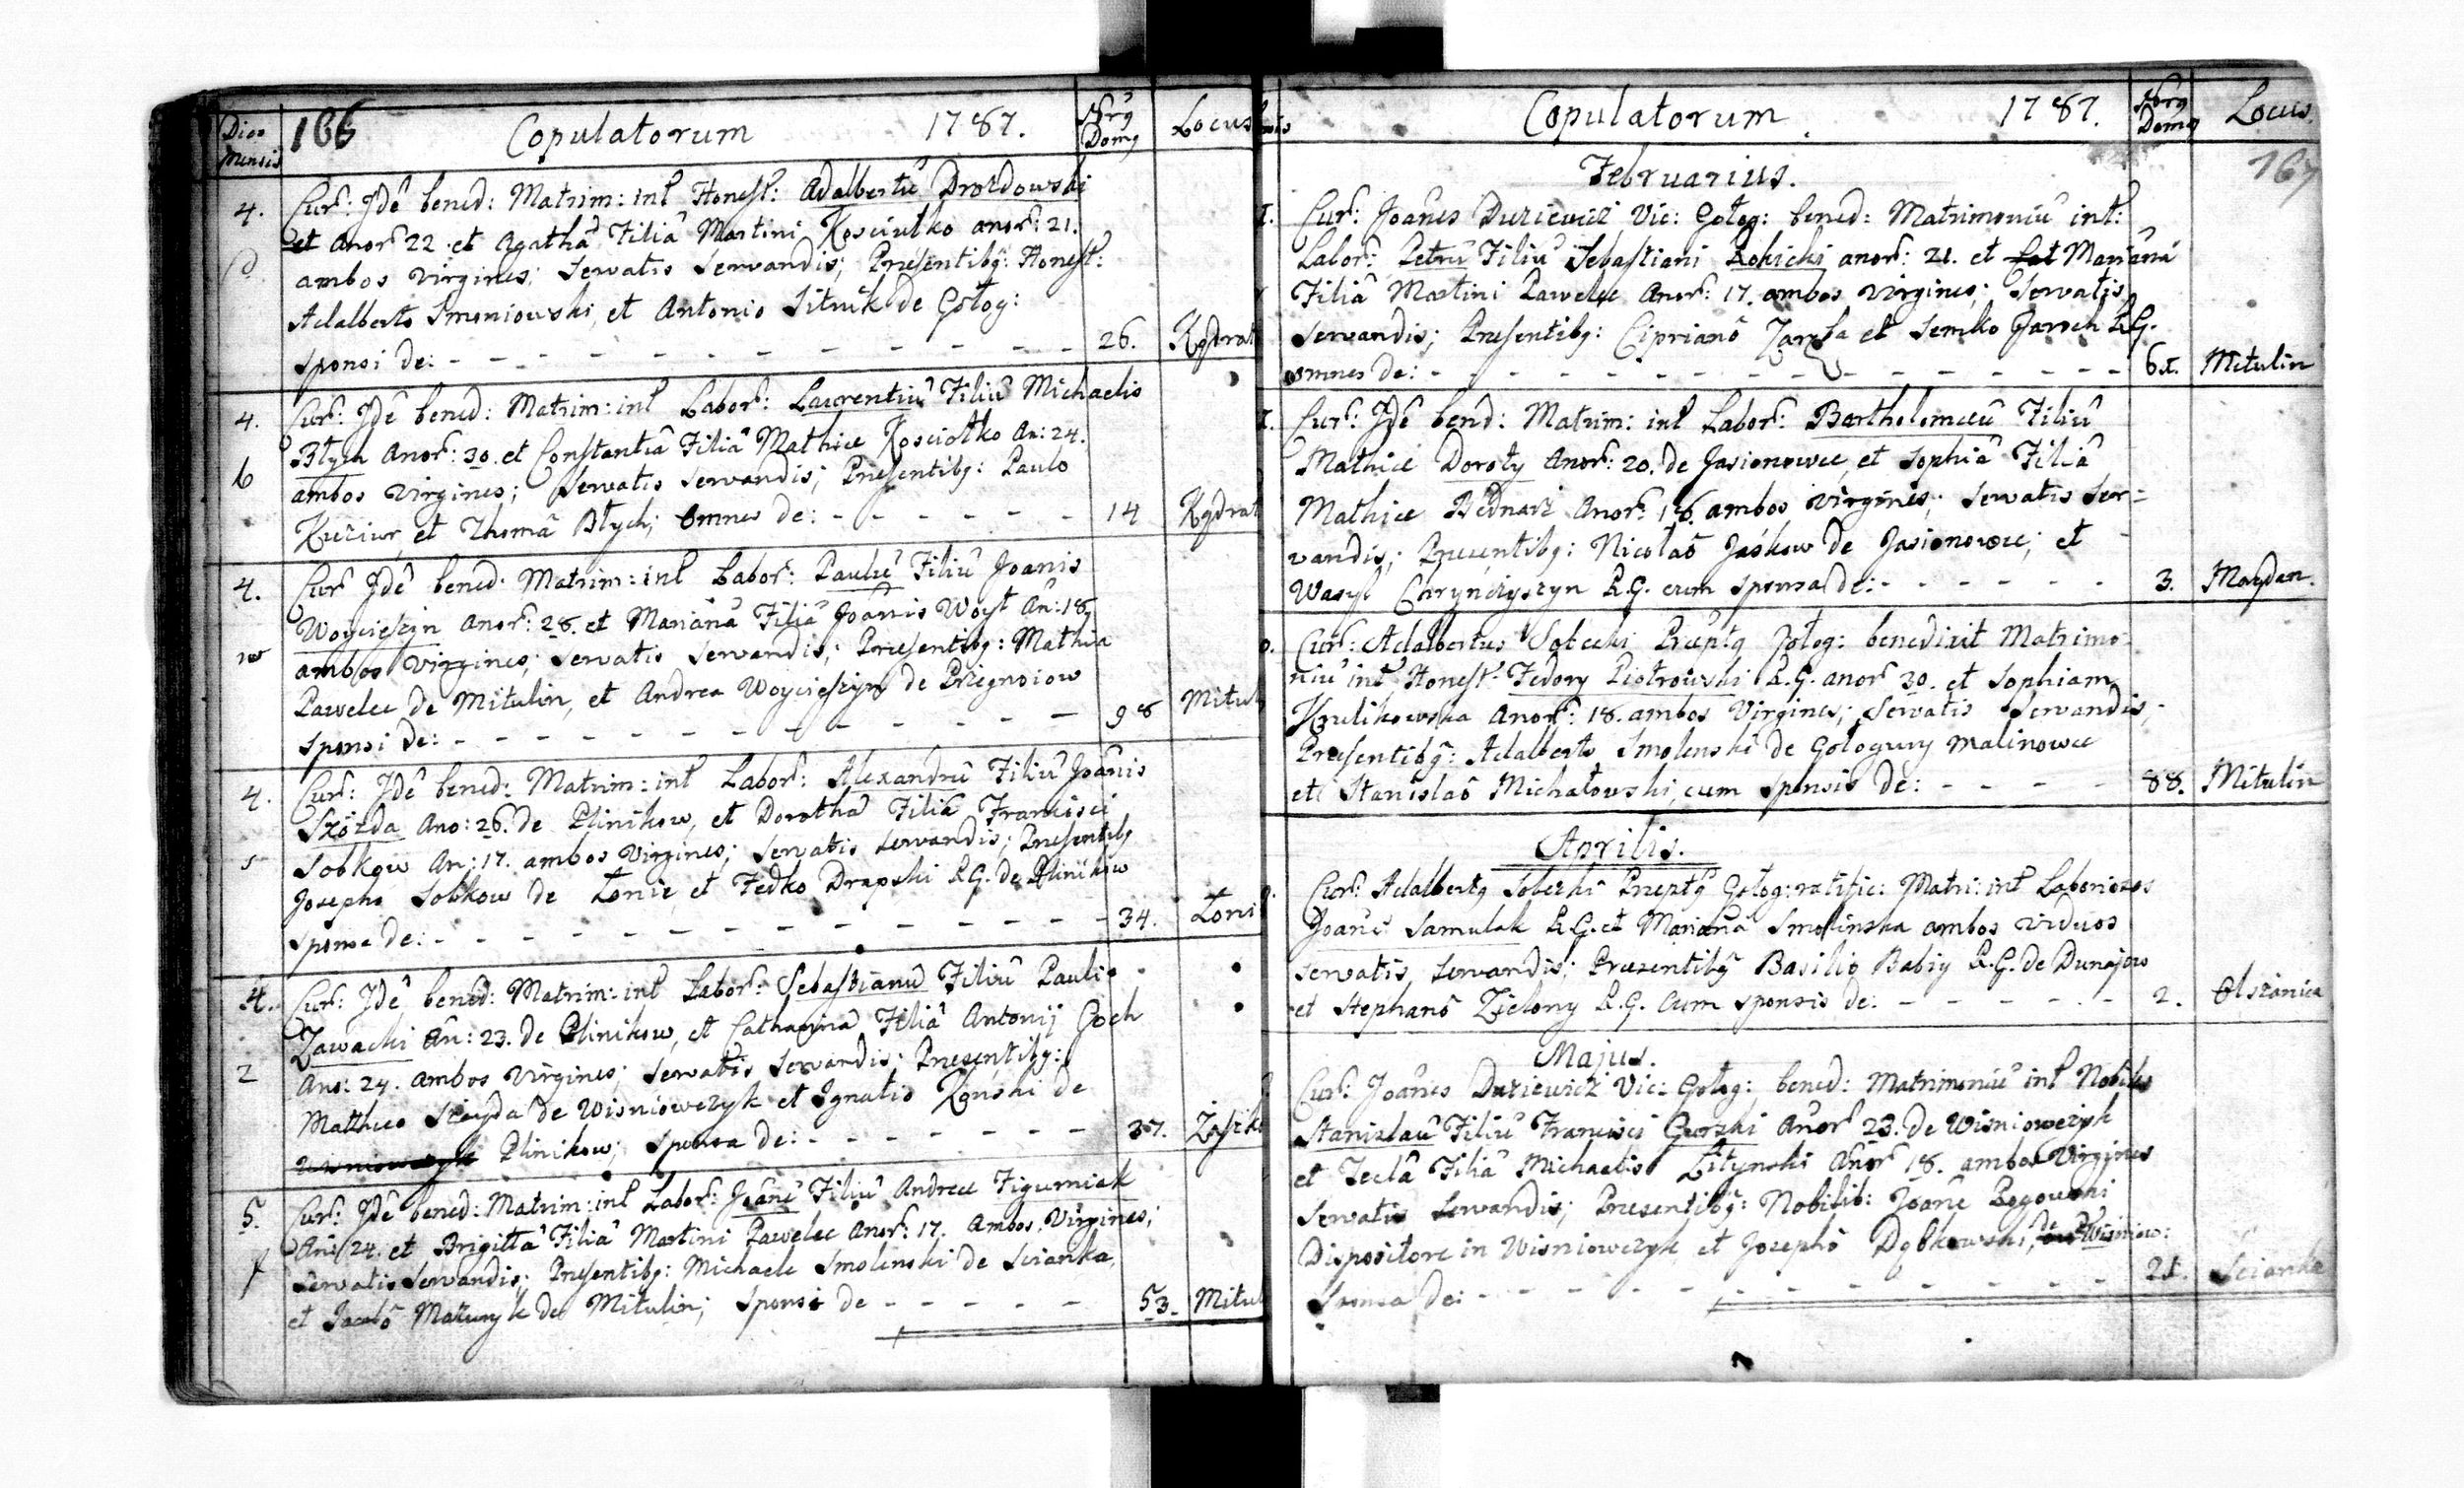 Dies Mensis 166 Copulatorum 1787. Nrg Domg Locus
4. Cur: Jdê bened: Matrim: int Honest: Adalbertû Drozdowski
et Anor 22 et Agathâ Filiâ Martini Kosciutko anor: 21.
ambos virgines; Servatis Servandis; Presentibg: Honest:
Adalberto Smoniowski, et Antonio Sitnik de Gołog:
Sponsi de: - - - - - - - - - - - - 26. Kądrat
4. Cur: Jdê bened: Matrim: int Labor: Laurentiû Filiû Michaelis
6 Błych Anor: 30. et Constantiâ Filiâ Mathiæ Kosciołko An: 24.
ambos Virgines; Servatis Servandis; Presentibg: Paulo
Kuziur, et Thomâ Błych; Omnes de: - - - - - - 14 Kądrat
4. Cur Jdê bened: Matrim: int Labor: Paulû Filiû Joanis
Woycieszyn Anor: 28. et Marianâ Filiâ Joanis Woyt An: 18.
ambos Virgines; Servatis Servandis; Presentibg: Mathia
Pawelec de Mitulin, et Andrea Woycieszyn de Przegnoiow
Sponsi de: - - - - - - - - - - - 98 Mitul
4. Cur: Jdê bened: Matrim: int Labor: Alexandrû Filiû Joânis
Szözda Ano: 26. de Plinikow, et Dorothâ Filiâ Francisci
s Sobkow An: 17. ambos Virgines; Servatis Servandis; Presentibg
Josepho Sobkow de Łonie et Fedko Drapski R.G. de Plinikow
Sponsa de: - - - - - - - - - - - 34. Łoni
4. Cur: Jdê bened: Matrim: int Labor: Sebastianû Filiû Pauli
Zawacki An: 23. de Plinikow, et Catharinâ Filiâ Antonij Goch
2 Ano: 24. ambos Virgines; Servatis Servandis; Presentibg:
Matheo Szayda de Wisniowczyk et Ignatio Konski de
Wisniowczyk Plinikow; Sponsa de: - - - - - - - 37.
5. Cur: Jdê bened: Matrim: int Labor: Joanê Filiû Andreæ Figurniak
Anô: 24. et Brigittâ Filiâ Martini Pawelec Anor: 17. Ambos Virgines;
Servatis Servandis; Presentibg: Michaele Smolenski de Scianka,
et Jacobô Mazuryk de Mitulin; Sponsi de - - - - - 53. Mitul
Copulatorum 1787. Nrg Domg Locus.
167
Februarius.
Cur: Joânes Duziewicz Vic: Gołog: bened: Matrimoniû int:
Labor: Petrû Filiû Sebastiani Rokicki anor: 21. et Marianâ
Filiâ Martini Pawelec Anor: 17. ambos Virgines; Servatis
Servandis; Presentibg: Cipriano Zaręba et Semko Jaroch R.G.
omnes de: - - - - - - - - - - - - 65. Mitulin
Cur: Jdê bend: Matrim: int Labor: Bartholomæû Filiû
Mathiæ Doroty Anor: 20. de Jasionowce, et Sophiâ Filiâ
Mathiæ Bednarz Anor: 18. ambos Virgines; Servatis Ser=
vandis; Presentibg: Nicolaô Jaśkow de Jasionowce; et
Wasyl Chrynczyszyn R.G. cum Sponsa de: - - - - - - 3. Maydan.
Cur: Adalbertus Sobecki Præptg Gołog: benedixit Matrimo-
niû int Honest: Fedory Piotrowski R.G. anor 30. et Sophiam
Krulikowska Anor: 18. ambos Virgines; Servatis Servandis;
Presentibg: Adalberto Smolenski de Gołogury Malinowce
et Stanislaô Michałowski, cum Sponsis de: - - - - 88. Mitulin
Aprilis.
Cur: Adalbertg Sobecki Præptg Gołog: ratific: Matri: int Laboriosos
Joanê Samulak R.G. et Marianâ Smolinska ambos viduos
Servatis, Servandis; Presentibg Basilio Babiy R.G. de Dunajow
et Stephanô Zielony R.G. Cum Sponsis de: - - - - - - 2. Olszanica
Majus.
Cur: Joânes Duziewicz Vic: Gołog: bened: Matrimoniû int Nobiles
Stanislaû Filiû Francisci Gurski Anor 23. de Wisniowczyk
et Teclâ Filiâ Michaelis Litynski Anor 18. ambos Virgines
Servatis Servandis; Presentibg: Nobilib: Joâne Rogowski
Dispositore in Wisniowczyk et Josephô Dąbkowski, de Wisniow:
Sponsa de: - - - - - - - - - - - 21. Scianka